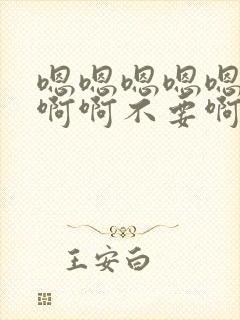 嗯嗯嗯嗯嗯
啊啊不要啊
王安白